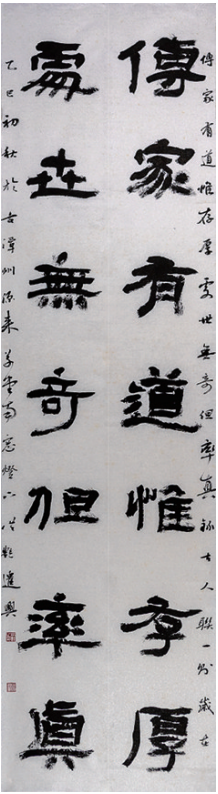 傳家有道惟存厚處世無奇但率真人聯一則歲在
傳家有道惟存厚
處世無奇但率真
乙巳初秋於古潭州南窗燈下遣興